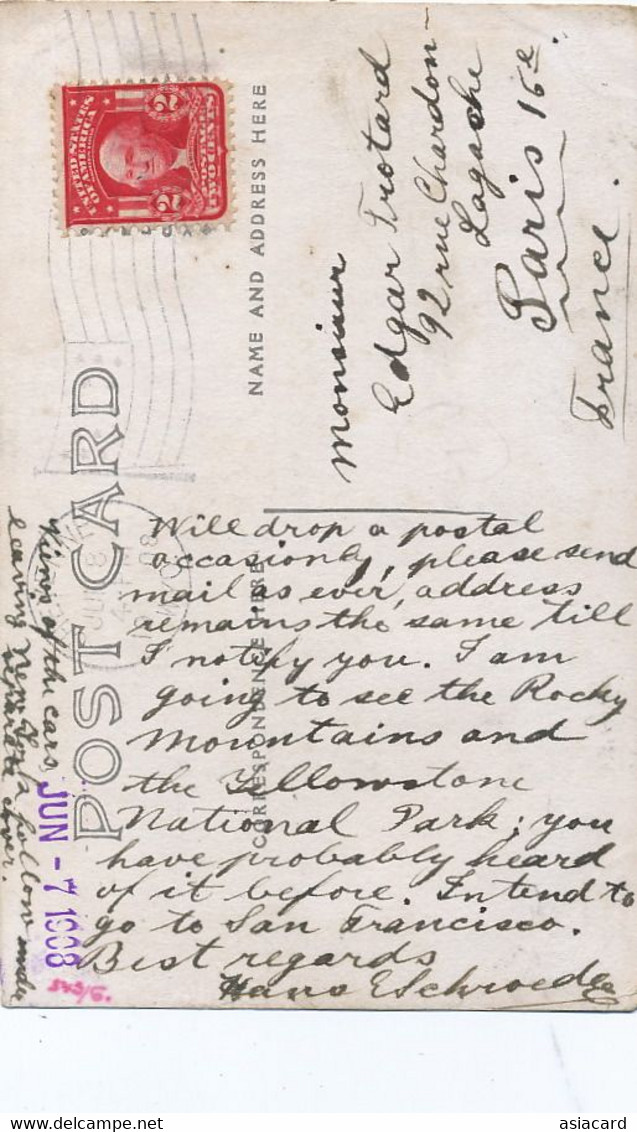 POST CARD
NAME AND ADDRESS HERE
CORRESPONDENCE HERE
UNITED STATES
OF AMERICA
POSTAGE
TWO CENTS
2
2
Monsieur
Edgar Frotard
92 rue Chardon-
Lagache
Paris 16e.
France.
Will drop a postal
occasionly, please send
mail as ever, address
remains the same till
I notify you. I am
going to see the Rocky
Mountains and
the Yellowstone
National Park; you
have probably heard
of it before. Intend to
go to San Francisco.
Best regards
Hans E Schroeder
JUN - 7 1908
Views of the cars
leaving New York follow under
cover.
www.delcampe.net
asiacard